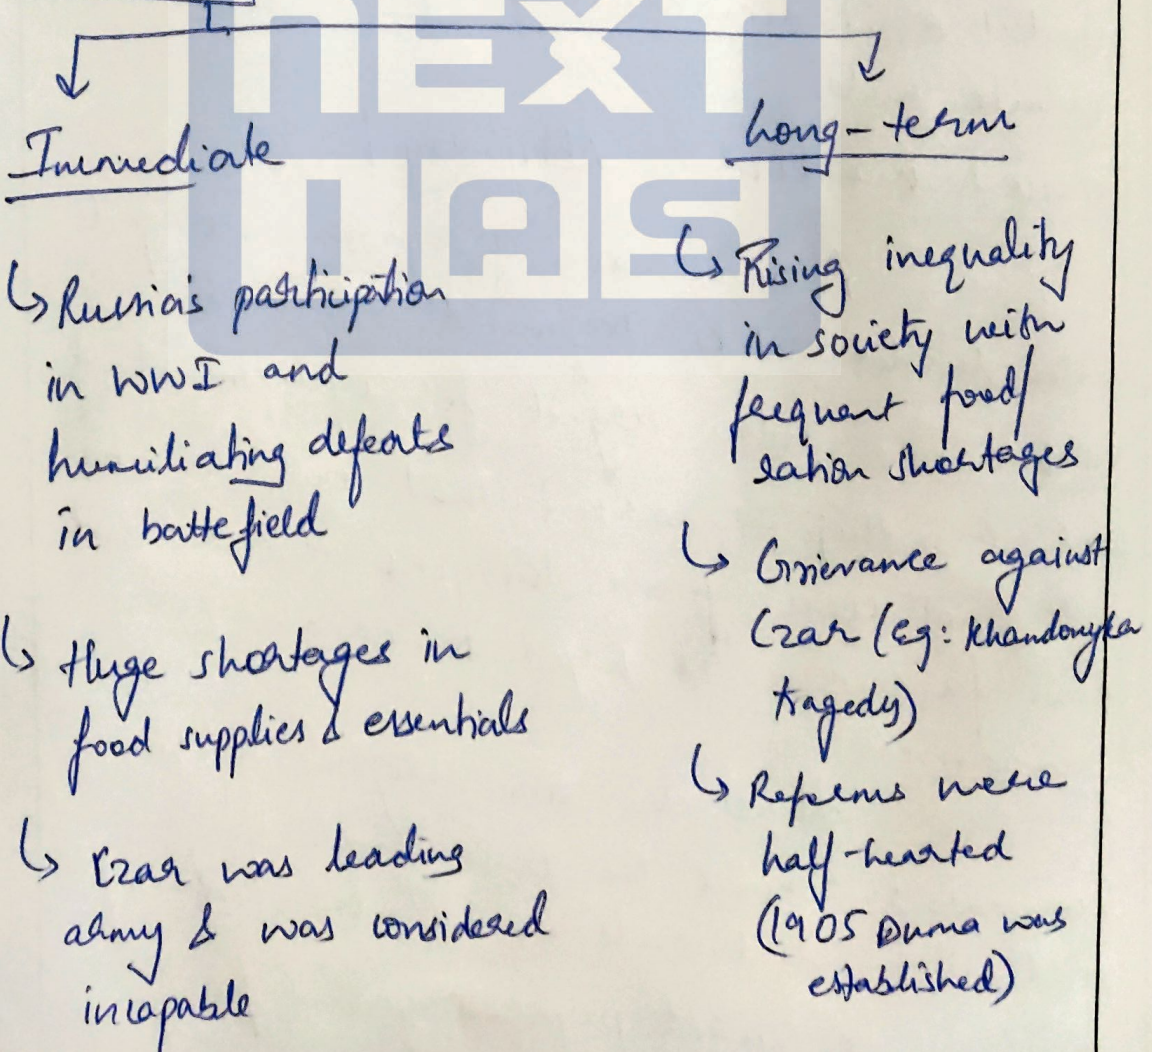 NEXT
IAS
Immediate
Russia's participation
in WWI and
humiliating defeats
in battefield
Huge shortages in
food supplies & essentials
Czar was leading
army & was considered
incapable
Long-term
Rising inequality
in society with
frequent food/
ration shortages
Grievance against
Czar (eg: Khandonyka
tragedy)
Reforms were
half-hearted
(1905 Duma was
established)